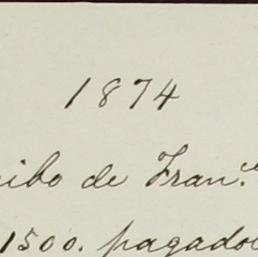 1874
cibo de Fran.co
1500. pagado